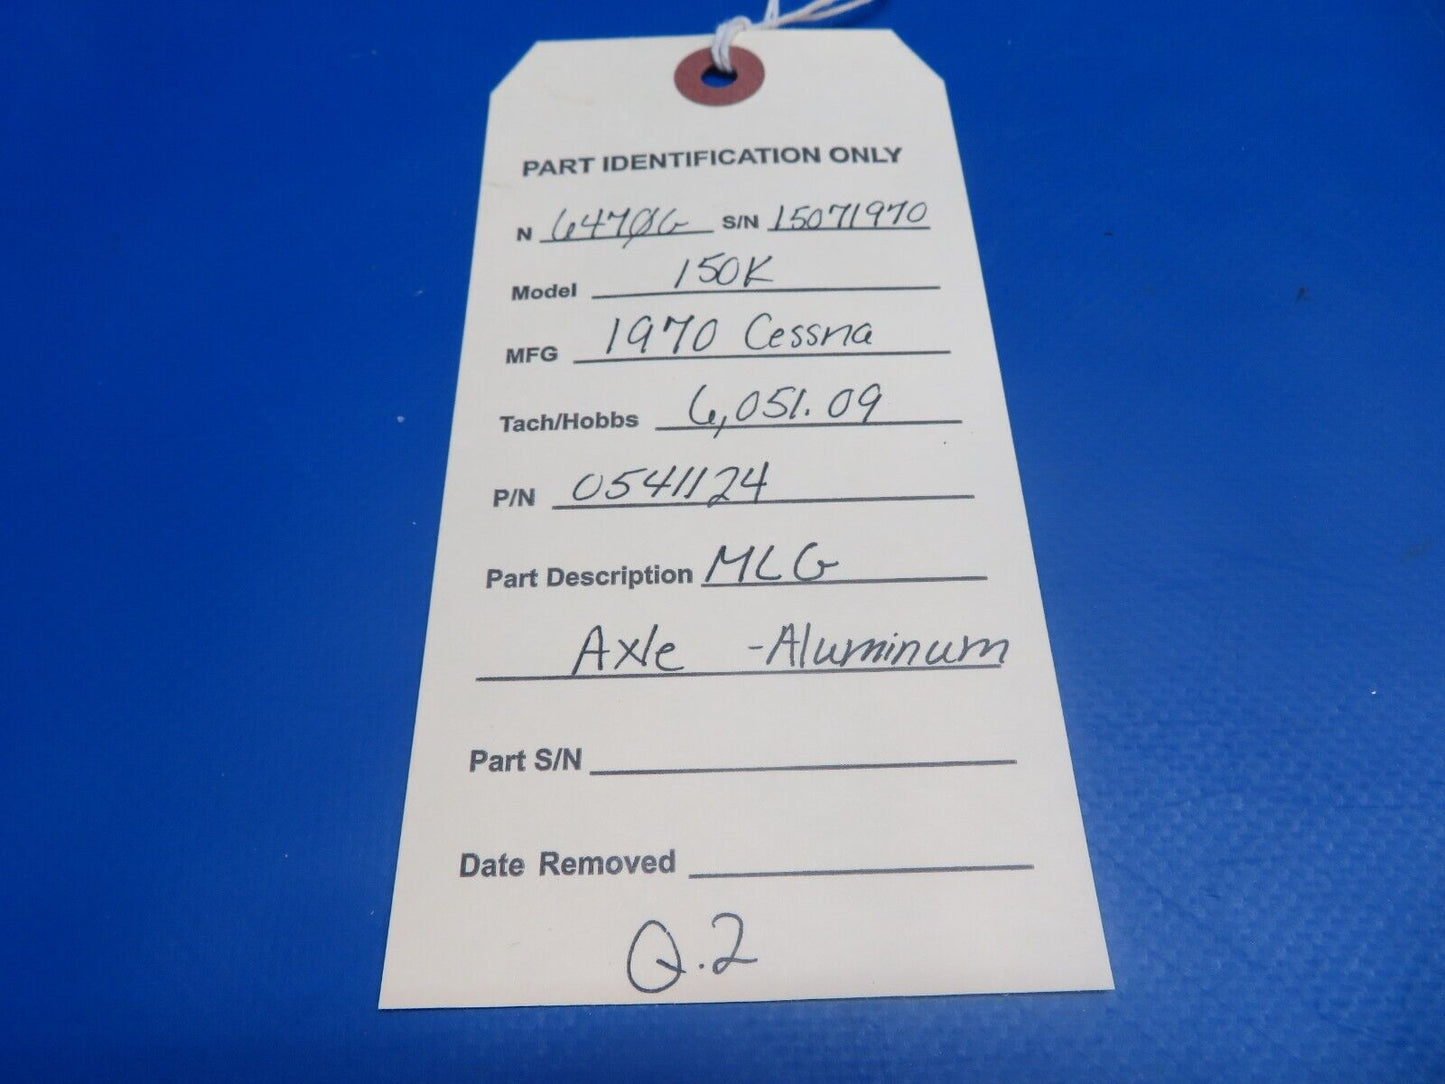 PART IDENTIFICATION ONLY
N 6470G S/N 15071970
Model 150K
MFG 1970 Cessna
Tach/Hobbs 6,051.09
P/N 0541124
Part Description MLG
Axle -Aluminum
Part S/N
Date Removed
Q.2